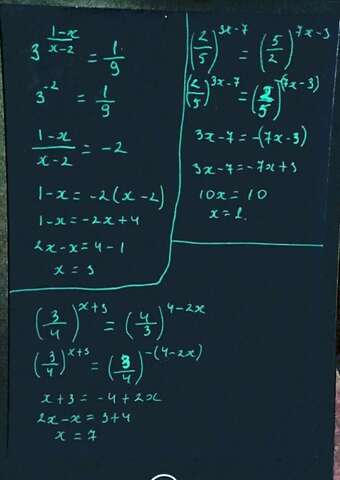 3^((1-x)/(x-2)) = 1/9
3^(-2) = 1/9
(1-x)/(x-2) = -2
1-x = -2(x-2)
1-x = -2x+4
2x-x = 4-1
x = 3
(2/5)^(3x-7) = (5/2)^(7x-3)
(2/5)^(3x-7) = (2/5)^(-(7x-3))
3x-7 = -(7x-3)
3x-7 = -7x+3
10x = 10
x = 1.
(3/4)^(x+3) = (4/3)^(4-2x)
(3/4)^(x+3) = (3/4)^(-(4-2x))
x+3 = -4+2x
2x-x = 3+4
x = 7